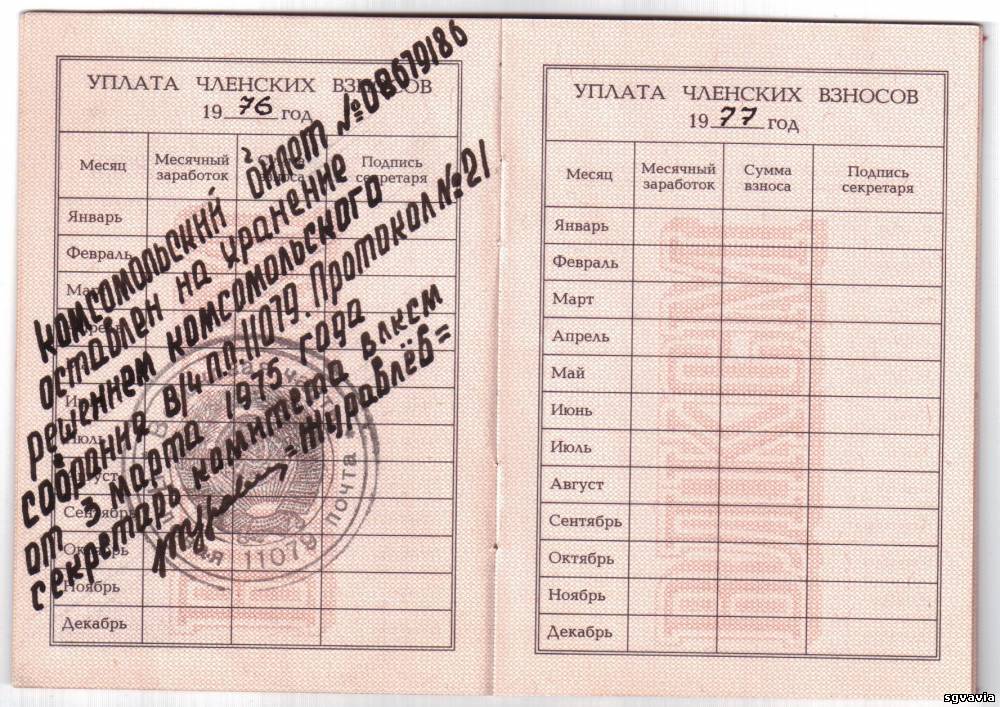 УПЛАТА ЧЛЕНСКИХ ВЗНОСОВ
1976 год
Месяц
Месячный заработок
Сумма взноса
Подпись секретаря
Январь
Февраль
Июль
Август
Сентябрь
Октябрь
Ноябрь
Декабрь
комсомольский билет №08679186
оставлен на хранение
решением комсомольского
собрания в/ч п.п.11079. Протокол №21
от 3 марта 1975 года
секретарь комитета влксм
=Журавлёв=
полевая почта
11079
УПЛАТА ЧЛЕНСКИХ ВЗНОСОВ
1977 год
Месяц
Месячный заработок
Сумма взноса
Подпись секретаря
Январь
Февраль
Март
Апрель
Май
Июнь
Июль
Август
Сентябрь
Октябрь
Ноябрь
Декабрь
ВЛКСМ
sgvavia